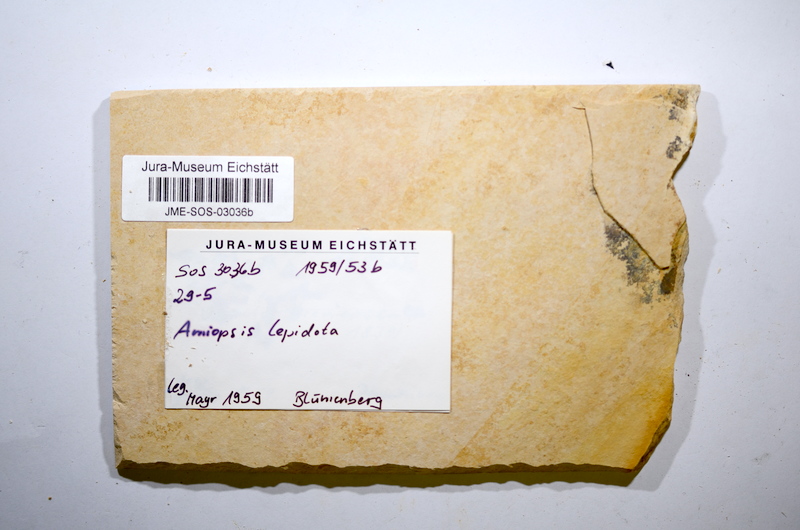 Jura-Museum Eichstätt
JME-SOS-03036b
JURA-MUSEUM EICHSTÄTT
SOS 3036b 1959/53b
29-5
Amiopsis lepidota
leg. Mayr 1959 Blumenberg